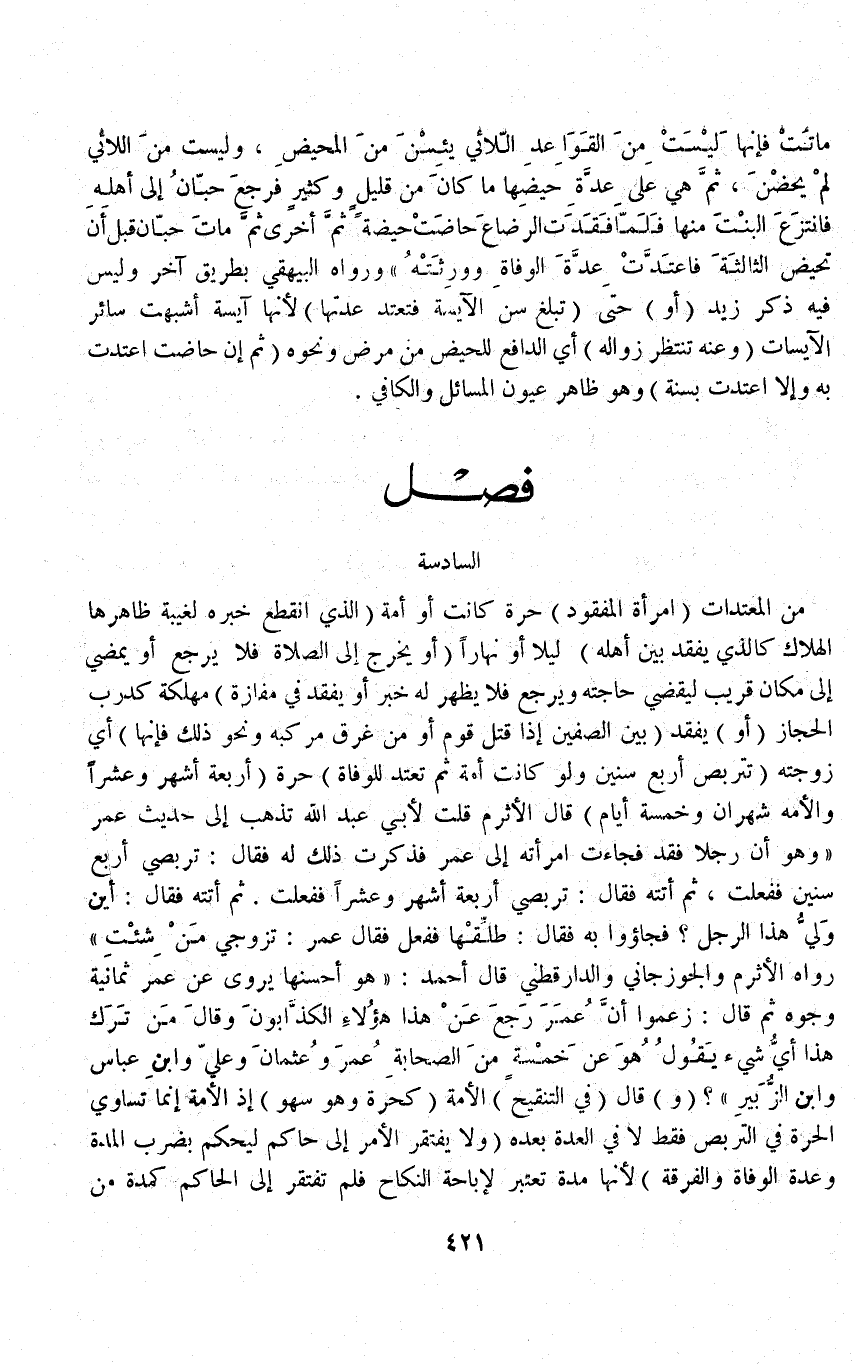 ماتَتْ فإنها لَيْسَتْ مِنَ القَوَاعِدِ اللّائي يئِسْنَ منَ المحيضِ ، وليست منَ اللائي
لمْ يحضْنَ ، ثمَّ هي على عِدَّةِ حيضِها ما كانَ من قليلٍ وكثيرٍ فرجعَ حبّانُ إلى أهلِهِ
فانتزَعَ البنْتَ منها فَلَمَّا فَقَدَتِ الرضاعَ حاضَتْ حيضةً ثمَّ أخرى ثمَّ ماتَ حبّان قبل أن
تحيض الثالثَةَ فاعتَدَّتْ عِدَّةَ الوفاةِ وورِثَتْهُ » ورواه البيهقي بطريق آخر وليس
فيه ذكر زيد ( أو ) حتى ( تبلغ سن الآيسة فتعتد عدتها ) لأنها آيسة أشبهت سائر
الآيسات ( وعنه تنتظر زواله ) أي الدافع للحيض من مرض ونحوه ( ثم إن حاضت اعتدت
به وإلا اعتدت بسنة ) وهو ظاهر عيون المسائل والكافي .
فصْل
السادسة
من المعتدات ( امرأة المفقود ) حرة كانت أو أمة ( الذي انقطع خبره لغيبة ظاهرها
الهلاك كالذي يفقد بين أهله ) ليلا أو نهاراً ( أو يخرج إلى الصلاة فلا يرجع أو يمضي
إلى مكان قريب ليقضي حاجته ويرجع فلا يظهر له خبر أو يفقد في مفازة ) مهلكة كدرب
الحجاز ( أو ) يفقد ( بين الصفين إذا قتل قوم أو من غرق مركبه ونحو ذلك فإنها ) أي
زوجته ( تتربص أربع سنين ولو كانت أمة ثم تعتد للوفاة ) حرة ( أربعة أشهر وعشراً
والأمه شهران وخمسة أيام ) قال الأثرم قلت لأبي عبد الله تذهب إلى حديث عمر
« وهو أن رجلا فقد فجاءت امرأته إلى عمر فذكرت ذلك له فقال : تربصي أربع
سنين ففعلت ، ثم أتته فقال : تربصي أربعة أشهر وعشراً ففعلت . ثم أتته فقال : أين
وَليُّ هذا الرجل ؟ فجاؤوا به فقال : طلِّقْها ففعل فقال عمر : تزوجي مَنْ شِئْتِ »
رواه الأثرم والجوزجاني والدارقطني قال أحمد : « هو أحسنها يروى عن عمر ثمانية
وجوه ثم قال : زعموا أنَّ عُمَرَ رَجعَ عَنْ هذا هؤلاءِ الكذَّابونَ وقالَ مَن تَرَك
هذا أيُّ شيء يَقُولُ هُوَ عن خَمْسةٍ منَ الصحابةِ عُمرَ وعُثمانَ وعليّ وابنِ عباس
وابن الزُّبَيرِ » ؟ ( و ) قال ( في التنقيح ) الأمة ( كحرة وهو سهو ) إذ الأمة إنما تساوي
الحرة في التربص فقط لا في العدة بعده ( ولا يفتقر الأمر إلى حاكم ليحكم بضرب المدة
وعدة الوفاة والفرقة ) لأنها مدة تعتبر لإباحة النكاح فلم تفتقر إلى الحاكم كمدة من
٤٢١